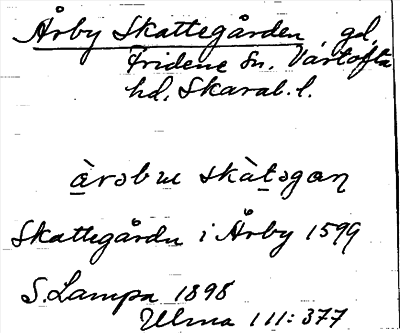 Årby Skattegården, gd,
Fridene Sn. Vartofta
hd. Skarab. l.
àrəbɯ skàtəgaƞ
Skattegården i Årby 1599
S. Lampa 1898
Ulma 111:377